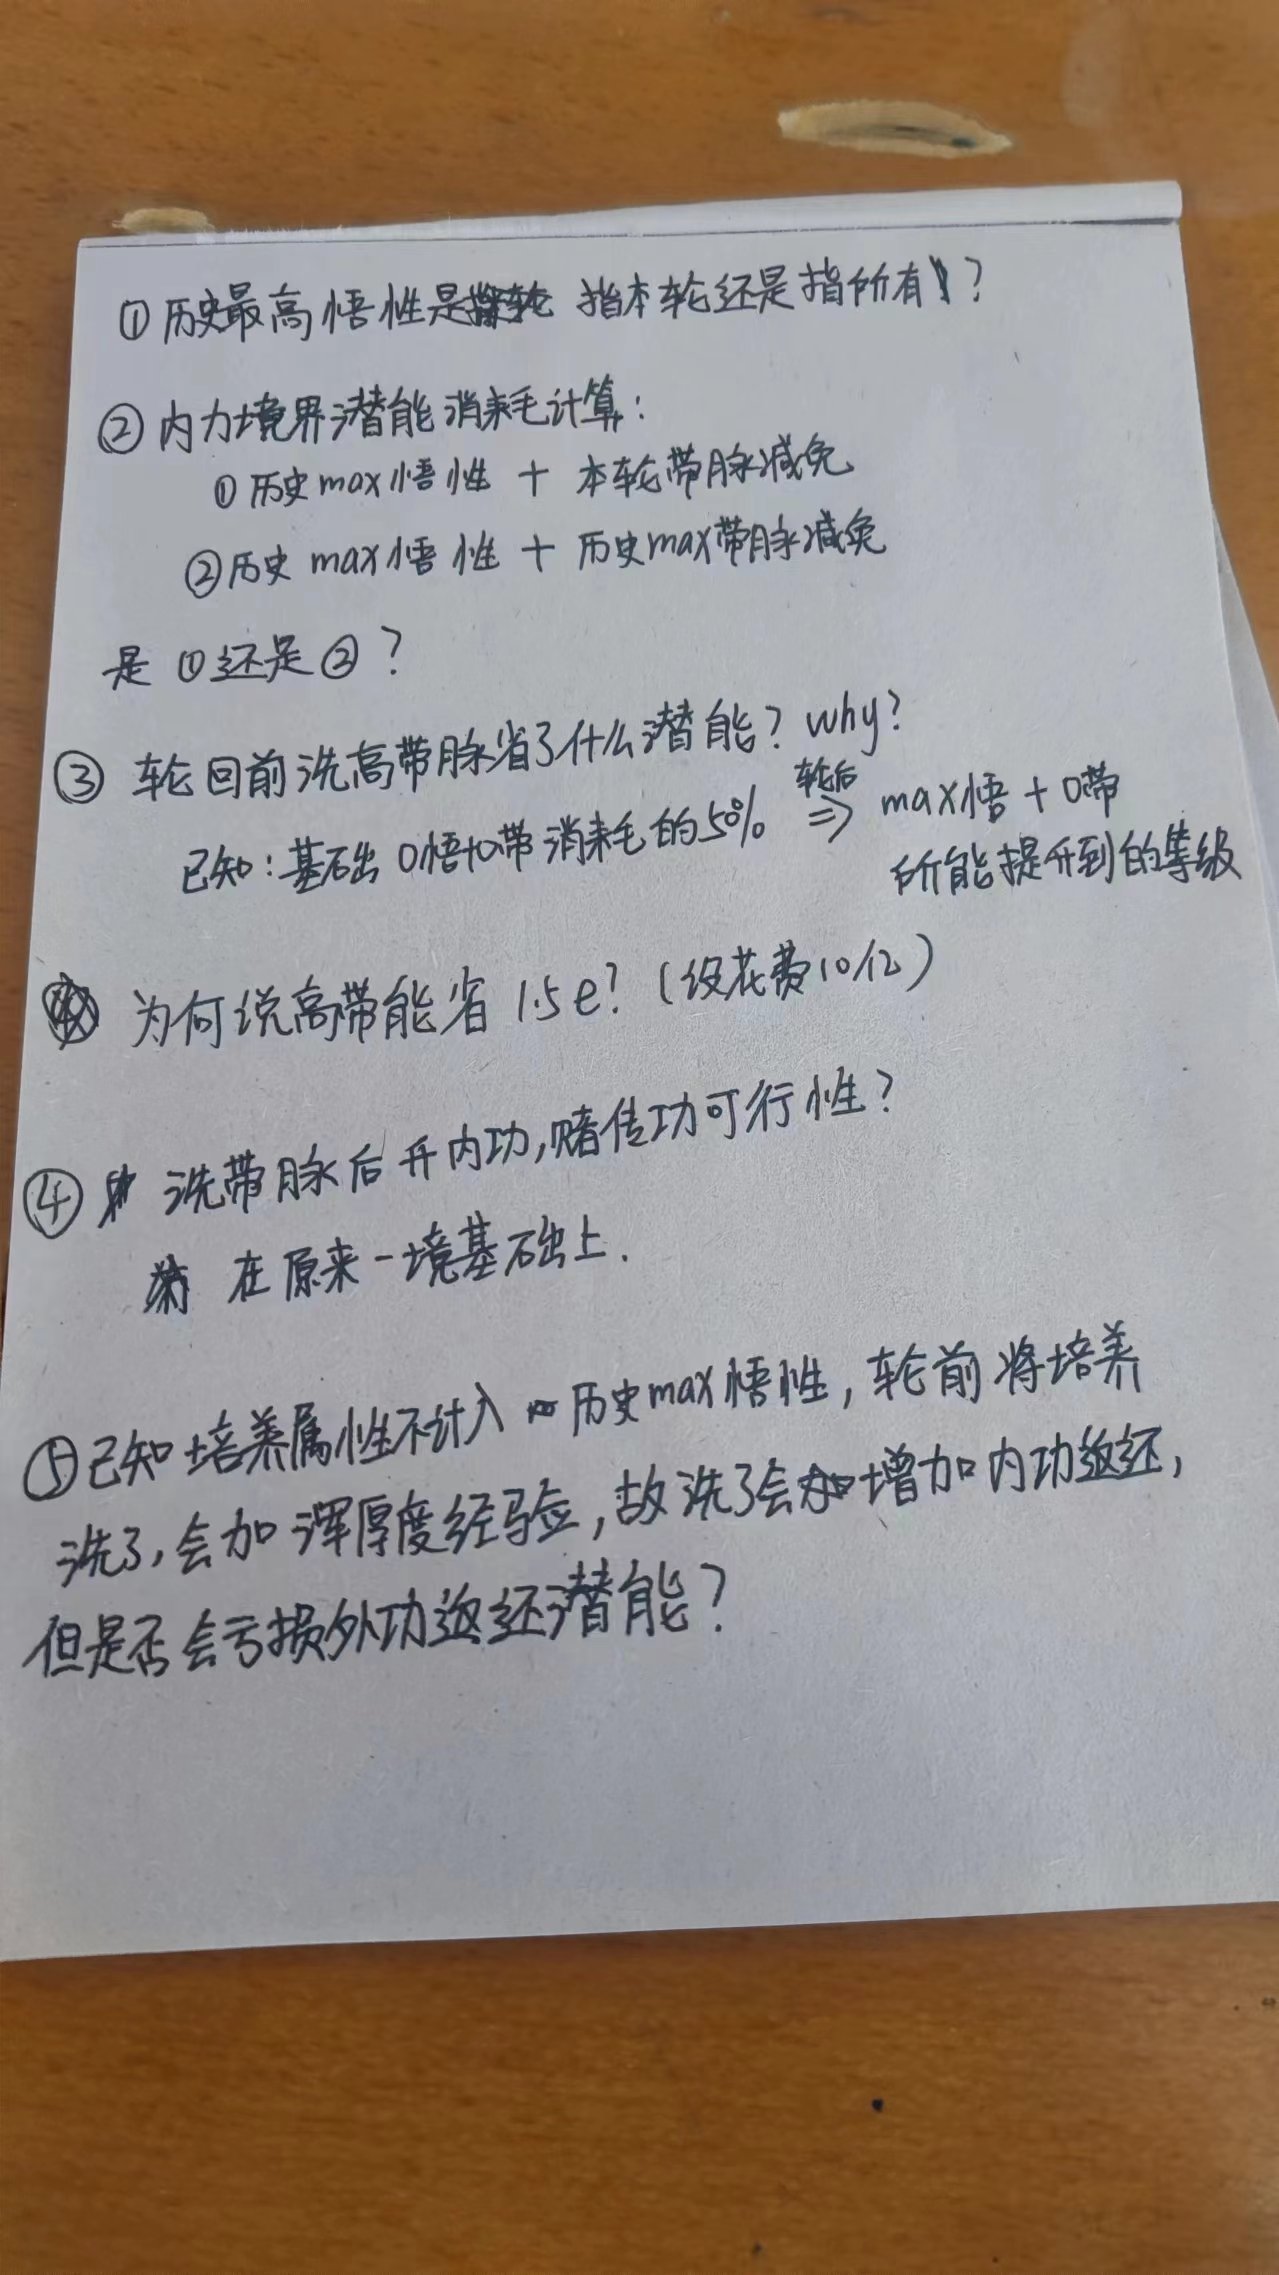 ①历史最高悟性是 指本轮还是指所有?
②内力境界潜能消耗计算:
①历史max悟性 + 本轮带脉减免
②历史max悟性 + 历史max带脉减免
是①还是②?
③轮回前洗高带脉省了什么潜能? why?
已知:基础0悟+0带消耗的50% 轮后⇒ max悟+0带
所能提升到的等级
为何说高带能省1.5e?(设花费10亿)
④ 洗带脉后开内功,赌传功可行性?
在原来一境基础上.
⑤已知培养属性不计入 历史max悟性,轮前将培养
洗了,会加浑厚度经验,故洗了会增加内功返还,
但是否会亏损外功返还潜能?